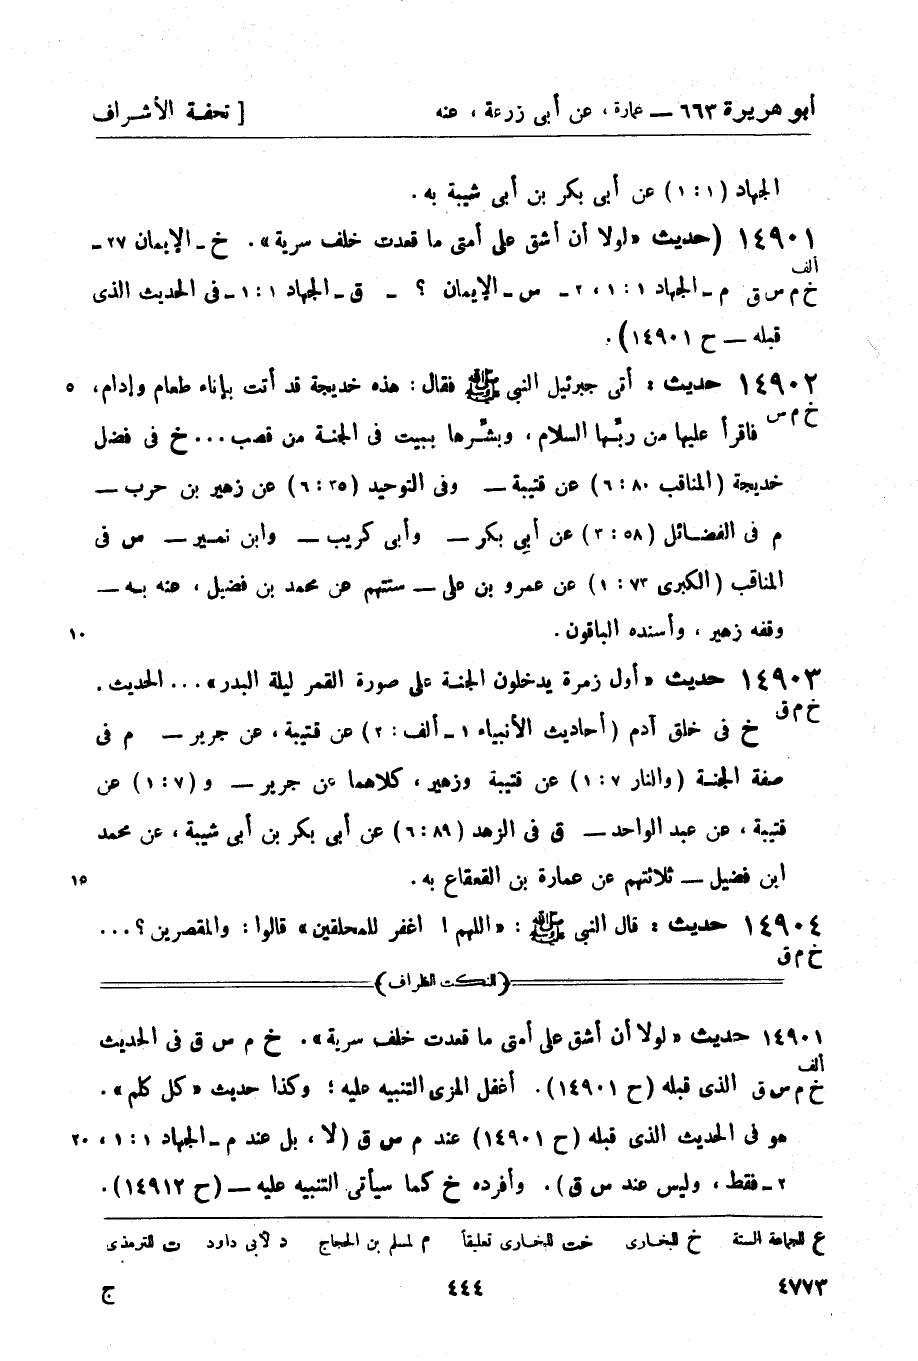 أبو هريرة ٦٦٣ — عمارة ، عن أبى زرعة ، عنه [ تحفة الأشراف
الجهاد (١ : ١) عن أبى بكر بن أبى شيبة به .
١٤٩٠١ (حديث « لولا أن أشق على أمتى ما قعدت خلف سرية » . خ ـ الإيمان ٢٧ ـ
ألف
خ م س ق م ـ الجهاد ١ : ١ ، ٢ ـ س ـ الإيمان ؟ ـ ق ـ الجهاد ١ : ١ ـ فى الحديث الذى
قبله — ح ١٤٩٠١) .
١٤٩٠٢ حديث : أتى جبرئيل النبى ﷺ فقال : هذه خديجة قد أتت بإناء طعام وإدام ، ٥
خ م س فاقرأ عليها من ربِّها السلام ، وبشِّرها ببيت فى الجنة من قصب ... خ فى فضل
خديجة (المناقب ٨٠ : ٦) عن قتيبة — وفى التوحيد (٣٥ : ٦) عن زهير بن حرب —
م فى الفضائل (٥٨ : ٣) عن أبى بكر — وأبى كريب — وابن نمير — س فى
المناقب (الكبرى ٧٣ : ١) عن عمرو بن على — ستتهم عن محمد بن فضيل ، عنه به —
وقفه زهير ، وأسنده الباقون . ١٠
١٤٩٠٣ حديث « أول زمرة يدخلون الجنة على صورة القمر ليلة البدر » ... الحديث .
خ م ق خ فى خلق آدم (أحاديث الأنبياء ١ ـ ألف : ٢) عن قتيبة ، عن جرير — م فى
صفة الجنة (والنار ٧ : ١) عن قتيبة وزهير ، كلاهما عن جرير — و (٧ : ١) عن
قتيبة ، عن عبد الواحد — ق فى الزهد (٨٩ : ٦) عن أبى بكر بن أبى شيبة ، عن محمد
ابن فضيل — ثلاثتهم عن عمارة بن القعقاع به . ١٥
١٤٩٠٤ حديث : قال النبى ﷺ : « اللهم ! اغفر للمحلقين » قالوا : والمقصرين ؟ ...
خ م ق
(النكت الظراف)
١٤٩٠١ حديث « لولا أن أشق على أمتى ما قعدت خلف سرية » . خ م س ق فى الحديث
ألف
خ م س ق الذى قبله (ح ١٤٩٠١) . أغفل المزى التنبيه عليه ؛ وكذا حديث « كل كلم » .
هو فى الحديث الذى قبله (ح ١٤٩٠١) عند م س ق (لا ، بل عند م ـ الجهاد ١ : ١ ، ٢٠
٢ ـ فقط ، وليس عند س ق) . وأفرده خ كما سيأتى التنبيه عليه — (ح ١٤٩١٢) .
ع للجماعة الستة خ للبخارى خت للبخارى تعليقاً م لمسلم بن الحجاج د لأبى داود ت للترمذى
٤٧٧٣ ٤٤٤ ج